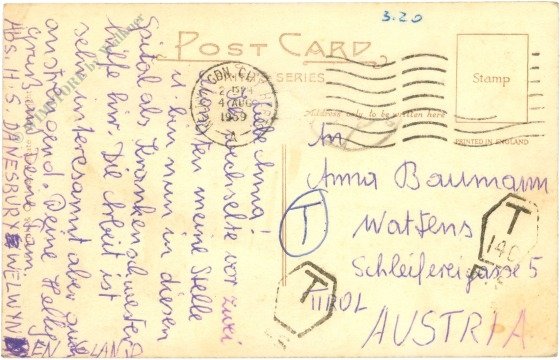 3.20
POST CARD
SERIES
Stamp
Address only to be written here
PRINTED IN ENGLAND
GARDEN CITY
4 AUG
1959
Liebe Anna!
wechselte vor zwei
meine Stelle
u. bin nun in diesen
Spital als Krankenschwester
hilfe hir. Die Arbeit ist
sehr interessant aber
anstrengend. Deine Helly
Gruß an Deine Fam.
Abs. H. S. DANESBURY WELWYN
ENGLAND
An
Anna Baumann
Wattens
Schleifergasse 5
TIROL
AUSTRIA
T
T
T
140